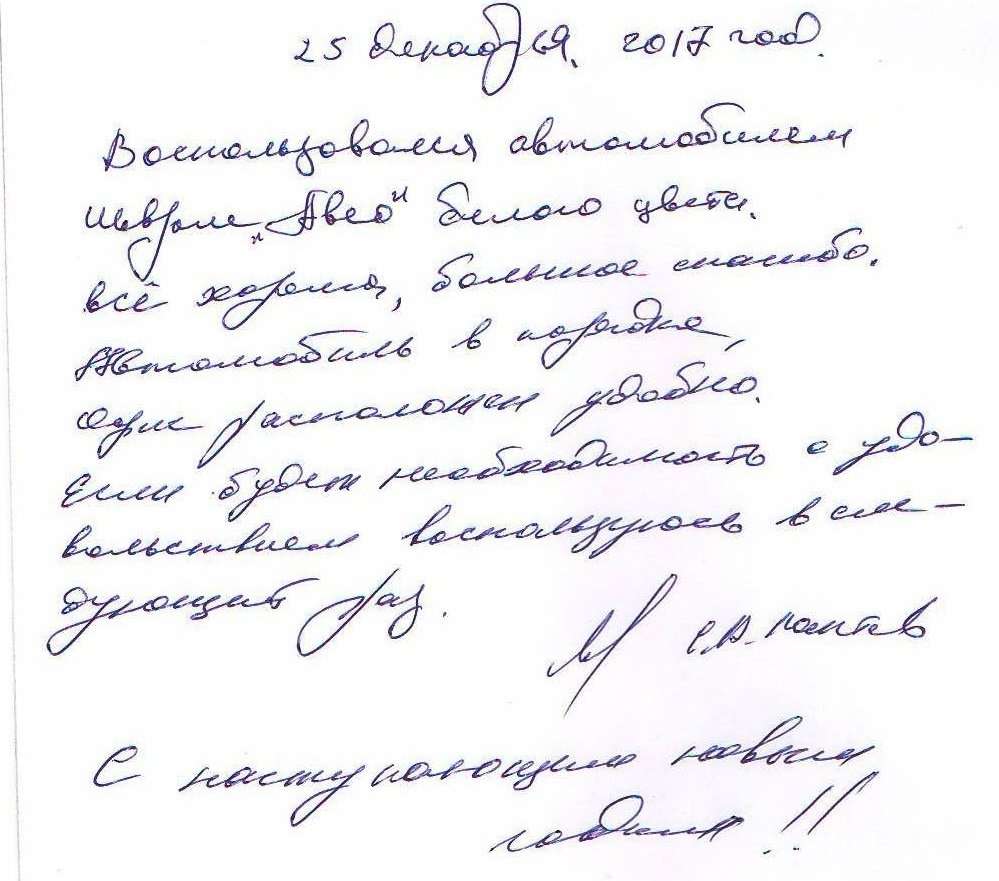 25 декабря. 2017 год.
Воспользовался автомобилем
Шевроле „Авео" белого цвета.
всё хорошо, большое спасибо.
Автомобиль в порядке,
офис расположен удобно.
Если будет необходимость с удо-
вольствием воспользуюсь в сле-
дующий раз.
С наступающим новым
годом!!